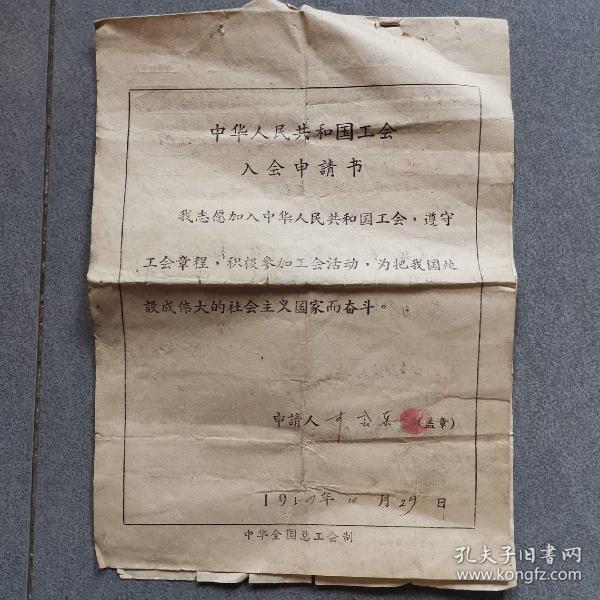 中华人民共和国工会
入会申請书
我志愿加入中华人民共和国工会，遵守
工会章程，积极参加工会活动，为把我国建
設成伟大的社会主义国家而奋斗。
申請人 (盖章)
19 年10月29日
中华全国总工会制
孔夫子旧書网
www.kongfz.com